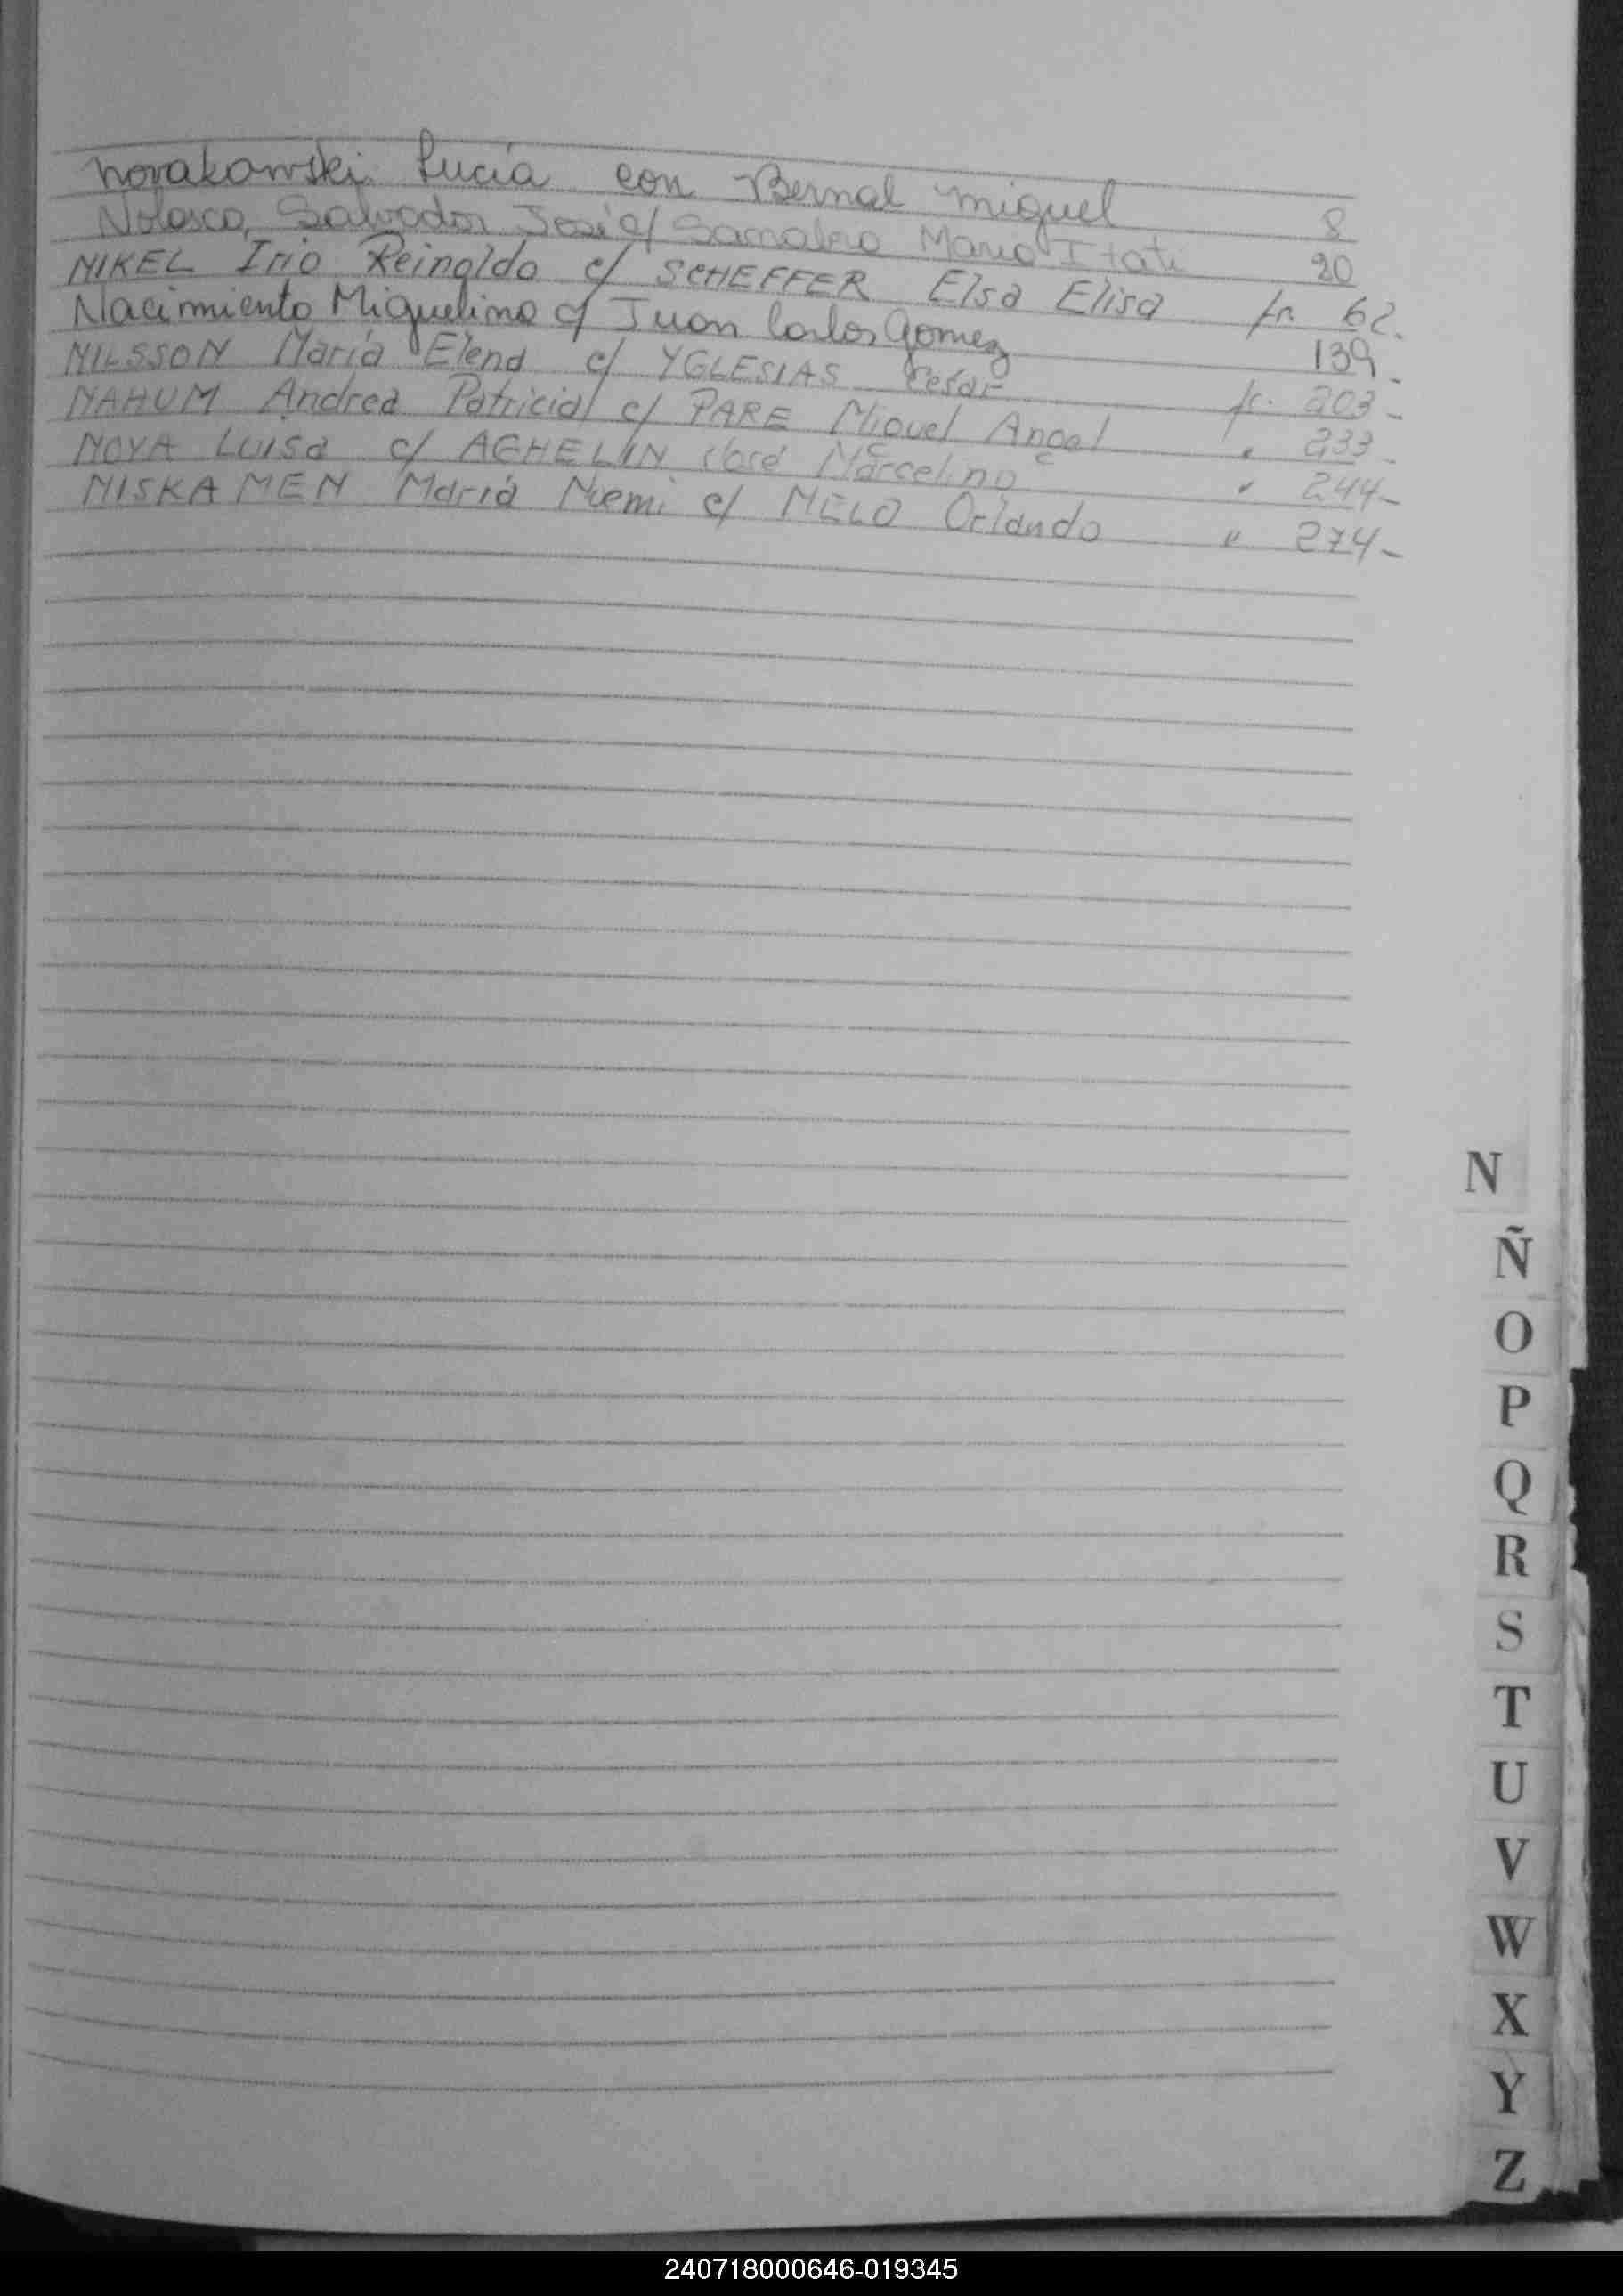 Novakowski Lucía con Bernal Miguel 8
Nolasco, Salvador José c/ Mario Itati 20
NIKEL Irio Reinaldo c/ SCHEFFER Elsa Elisa fr. 62.
Nacimiento Miguelina c/ Juan Carlos Gomez 139
NILSSON María Elena c/ YGLESIAS Cesar fr. 203-
NAHUM Andrea Patricia c/ PARE Miguel Angel " 233-
NOYA Luisa c/ AGHELIN José Marcelino " 244-
NISKAMEN María Nuemi c/ MELO Orlando " 274-
N
Ñ
O
P
Q
R
S
T
U
V
W
X
Y
Z
240718000646-019345